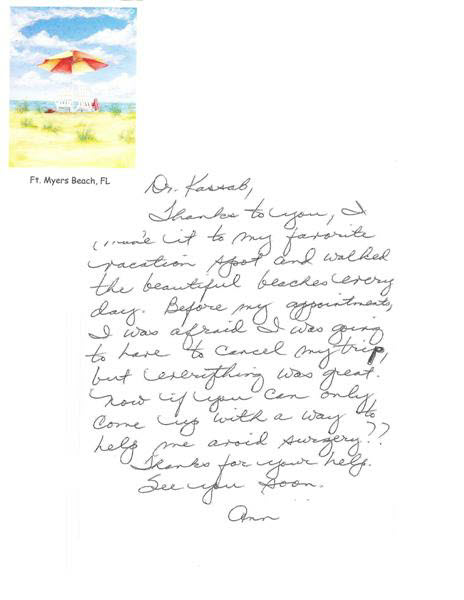 Ft. Myers Beach, FL
Dr. Kassab,
Thanks to you, I
made it to my favorite
vacation spot and walked
the beautiful beaches every
day. Before my appointments,
I was afraid I was going
to have to cancel my trip,
but everything was great.
Now if you can only
come up with a way to
help me avoid surgery??
Thanks for your help.
See you soon.
Ann